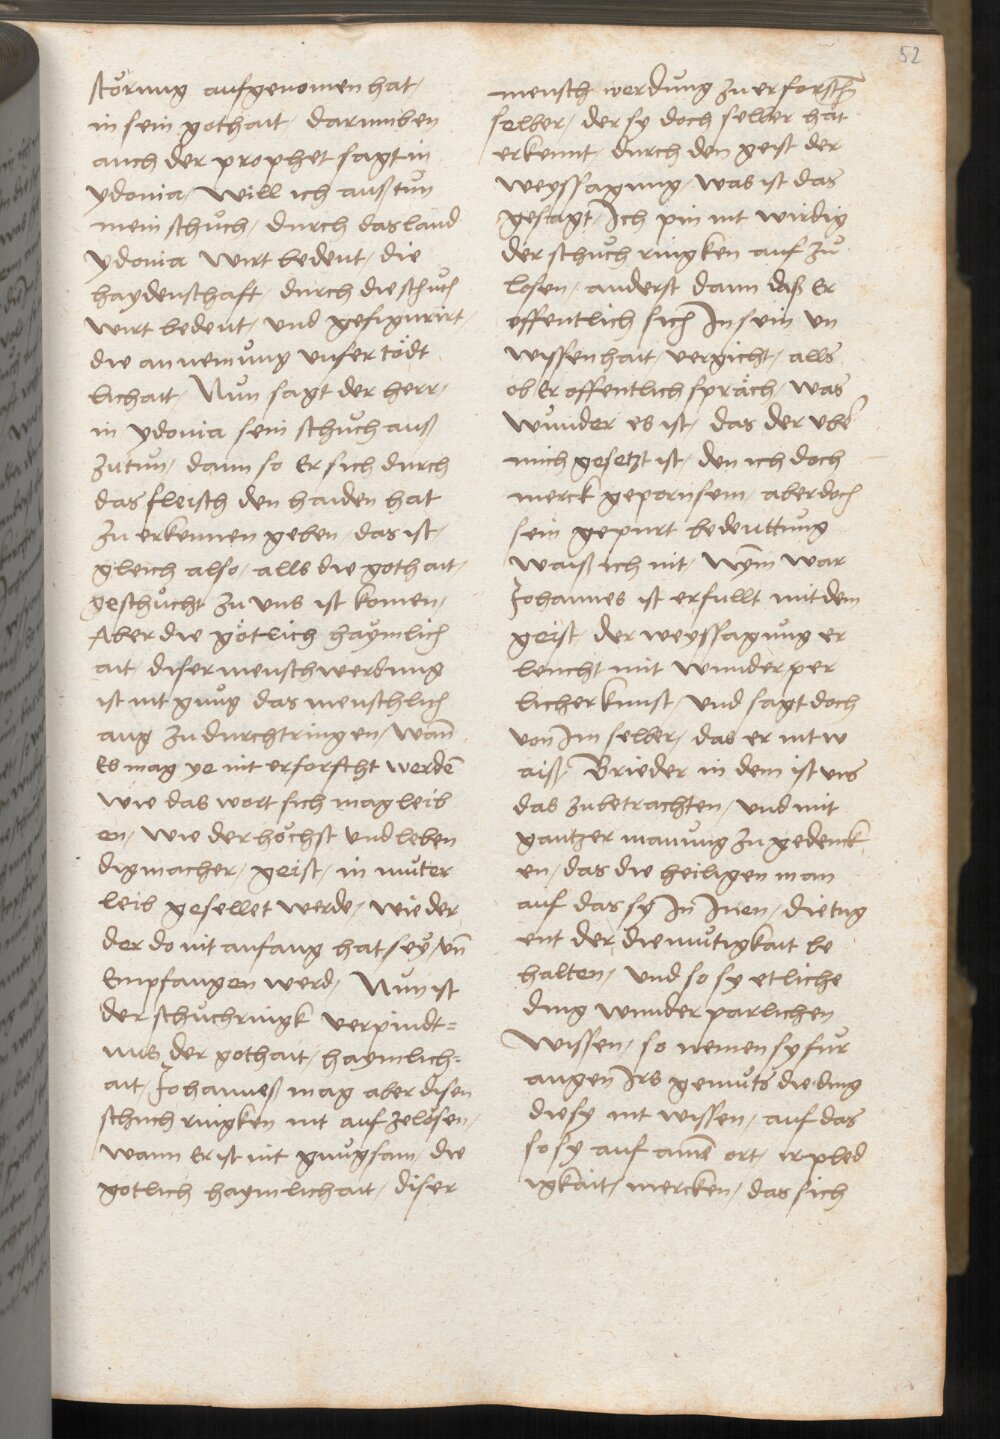 52
störung aufgenomen hat /
in sein gothait / darumben
auch der prophet sagt in
ydonia / will ich auß tůn
mein schůch / durch das land
ydonia wirt bedeut / die
haydenschafft / durch die schůch
wirt bedeut / und gefigurirt /
die annemůng unser tödt
lichait / Nůn sagt der herr /
in ydonia sein schůch auß
zutůn / dann so Er sich durch
das fleisch den haiden hat
zu erkennen geben / das ist /
gleich also / alls die gothait /
geschůcht zu uns ist komen /
Aber die götlich haymlich
ait / diser menschwerdung
ist nit gnůg das menschlich
aug zu durchtringen / wañ
Es mag ye nit erforscht werdē
wie das wort sich mag leib
en / wie der höchst und leben
digmacher / geist / in můter
leib gesellet werde / wie der
der do nit anfang hat seÿ / uñ
Empfangen werd / Nůn ist
der schůchringk verpindt=
nus der gothait / haymlich=
ait / Johannes mag aber disen
schuch ringken nit auf zelösen /
wann Er ist nit gnůgsam / die
gotlich haymlichait / diser
mensch werdůng zu erforschn
selber / der sy doch selber hat
erkennt / durch den geist der
weyssagung / was ist das
gesagt / Ich pin nit wirdig
der schůch ringken auf zů
losen / anderst dann daß Er
offentlich sich In sein un
wissenhait vergicht / alls
ob Er offentlich spräch / was
wůnder es ist / das der ubē
mich gesetzt ist / den ich doch
merck geporn sein / aber doch
sein gepurt bedeuttůng
waiß ich nit / wym̄ war
Johannes ist erfullt mit dem
geist der weyssagůng er
leucht mit wunder per
licher kunst / und sagt doch
von Im selber / das er nit w
aiß / Brieder in dem ist uns
das zubetrachten / und mit
gantzer manůng zu gedenck
en / das die heiligen man
auf das sy In Inen / die tug
ent der diemůtigkait be
halten / und so sy etliche
ding wunder parlichen
wissen / so nemen sy für
augen Irs gemůts die ding
die sy nit wissen / auf das
so sy auf aimē ort / ir pled
igkait / mercken / das sich